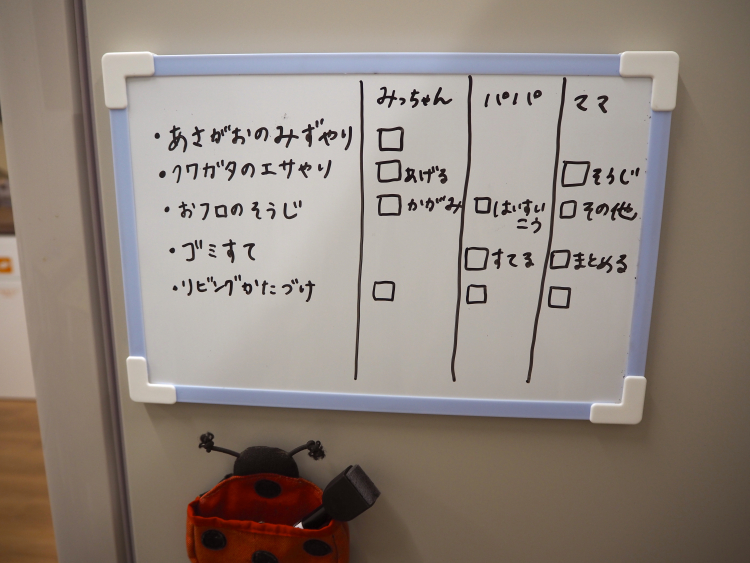 みっちゃん パパ ママ
・あさがおのみずやり □
・クワガタのエサやり □あげる □そうじ
・おフロのそうじ □かがみ □はいすいこう □その他
・ゴミすて □すてる □まとめる
・リビングかたづけ □ □ □